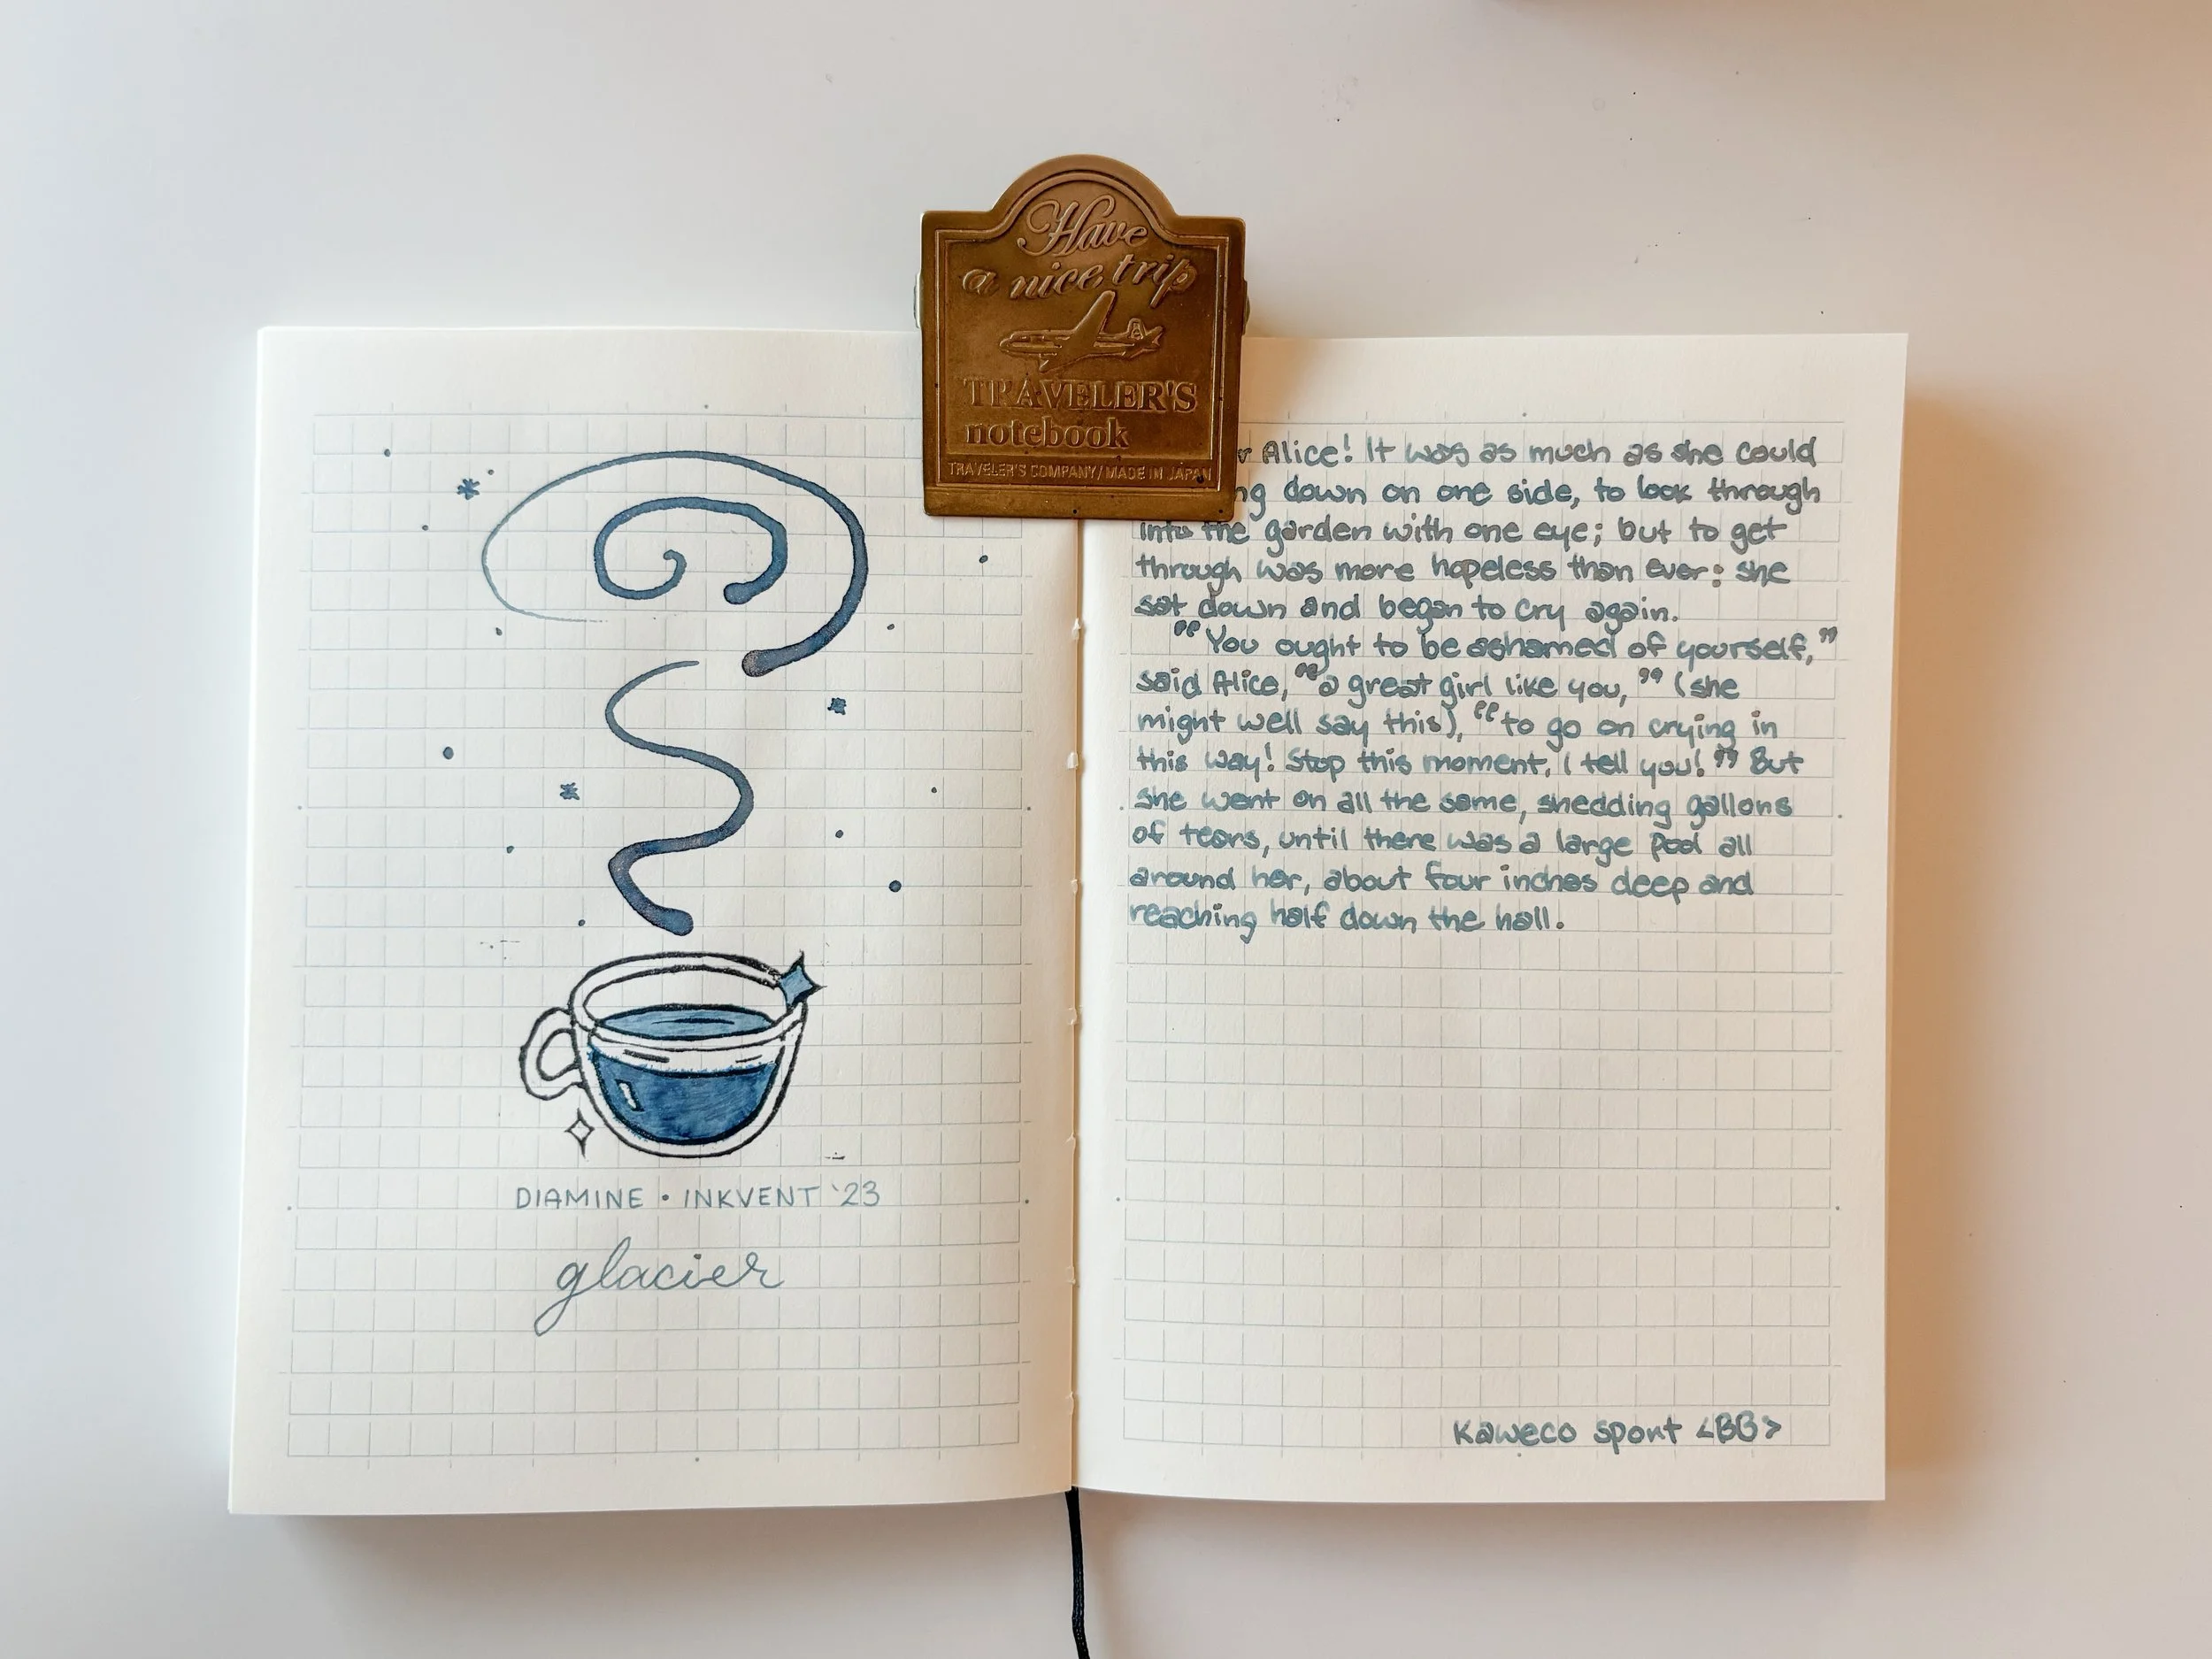 Have
a nice trip
TRAVELER'S
notebook
TRAVELER'S COMPANY/MADE IN JAPAN
DIAMINE • INKVENT '23
glacier
Alice! It was as much as she could
down on one side, to look through
into the garden with one eye; but to get
through was more hopeless than ever: she
sat down and began to cry again.
"You ought to be ashamed of yourself,"
said Alice, "a great girl like you," (she
might well say this), "to go on crying in
this way! Stop this moment, I tell you!" But
she went on all the same, shedding gallons
of tears, until there was a large pool all
around her, about four inches deep and
reaching half down the hall.
Kaweco sport <BB>